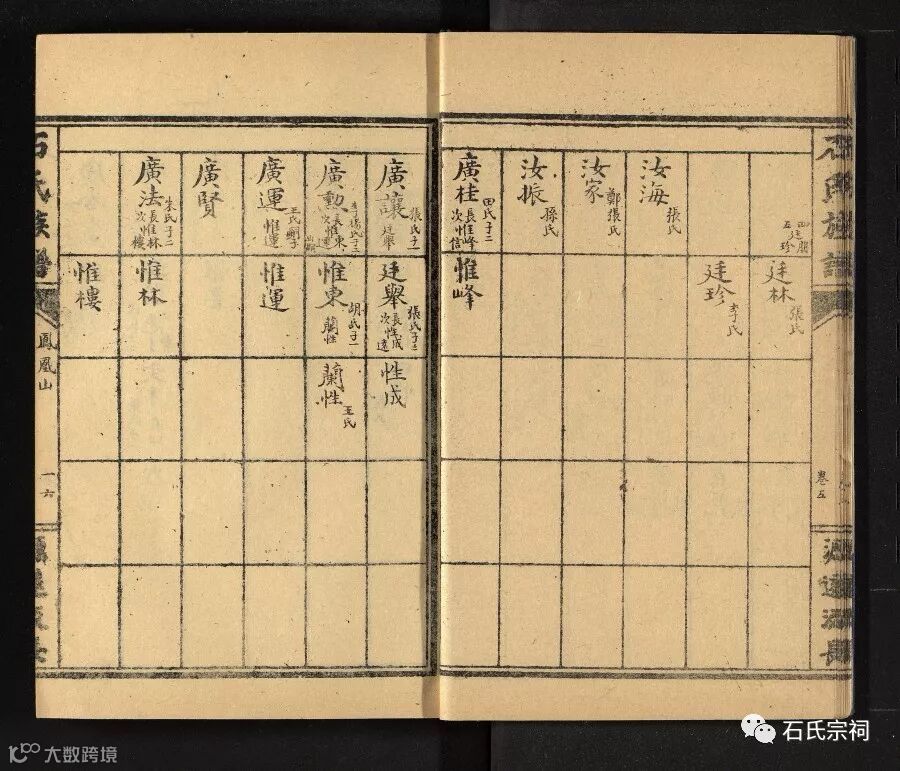 石氏族譜
卷五
源遠流長
四廷關
五廷珍
廷林 張氏
廷珍 李氏
汝海 張氏
汝家 鄭張氏
汝振 孫氏
廣桂 田氏子二
長惟峰
次惟信
惟峰
廣讓 張氏子一
廷舉
廷舉 張氏子二
長性成
次性遠
性成
廣勲 李楊氏子三
長惟東
次惟運
惟東 胡氏子一
蘭性
蘭性 王氏
廣運 王氏嗣子
惟運
惟運
廣賢
廣法 朱氏子二
長惟林
次惟樓
惟林
惟樓
石氏族譜
鳳凰山
一六
源遠流長
石氏宗祠
大数跨境